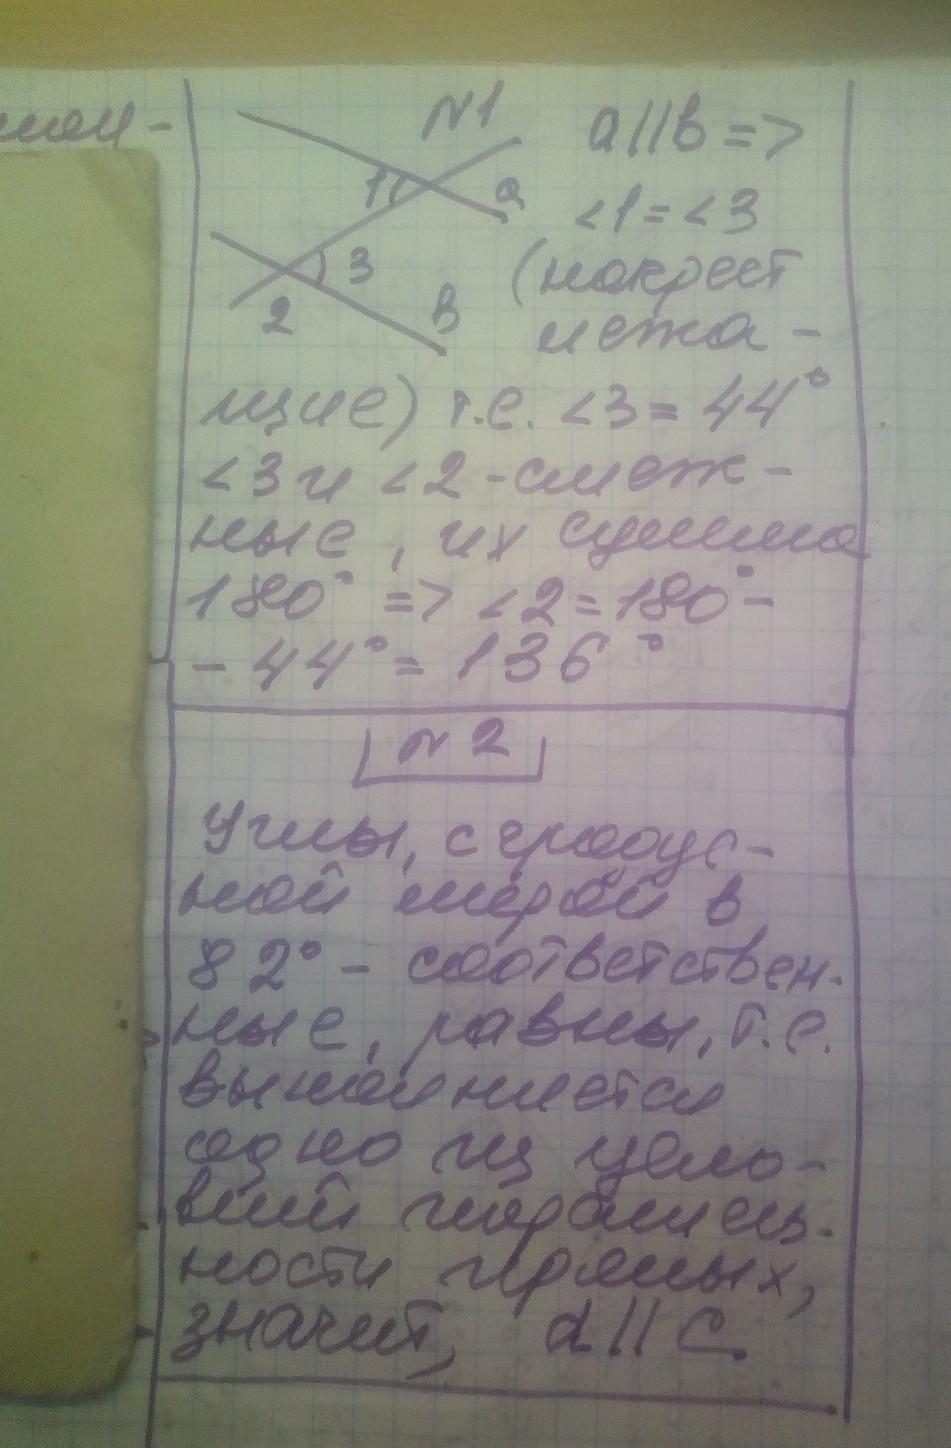 N1
a||b =>
1
a
<1=<3
3
(накрест
2
b
лежа-
щие) т.е. <3=44°
<3 и <2-смеж-
ные, их сумма
180° => <2=180°-
-44°=136°
N2
Углы, с градус-
ной мерой в
82° - соответствен-
ные, равны, т.е.
выполняется
одно из усло-
вий параллель-
ности прямых,
значит, d||c